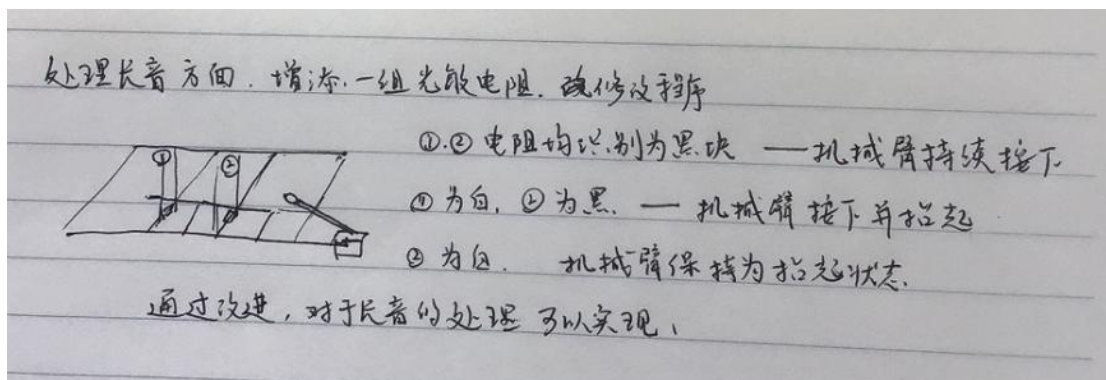 处理长音方面.增添.一组光敏电阻.修改程序
① ②
①.②电阻均识别为黑块 — 机械臂持续按下
①为白,②为黑. — 机械臂按下并抬起
②为白. 机械臂保持为抬起状态.
通过改进,对于长音的处理可以实现,